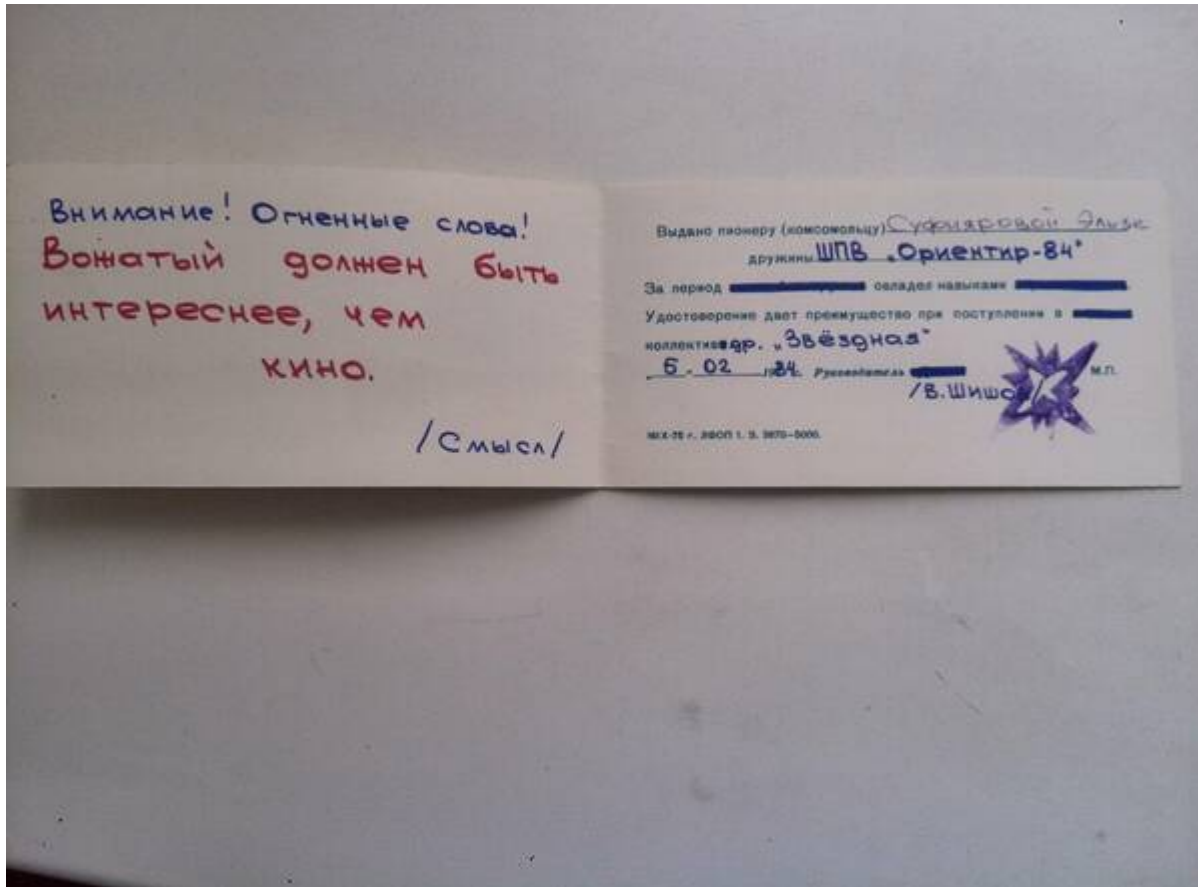 Внимание! Огненные слова!
Вожатый должен быть
интереснее, чем
кино.
/Смысл/
Выдано пионеру (комсомольцу) Суфияровой Эльзе
дружины ШПВ „Ориентир-84"
За период овладел навыками
Удостоверение дает преимущество при поступлении в
коллектив др. „Звёздная"
5. 02 1984. Руководитель
/В. М.П.